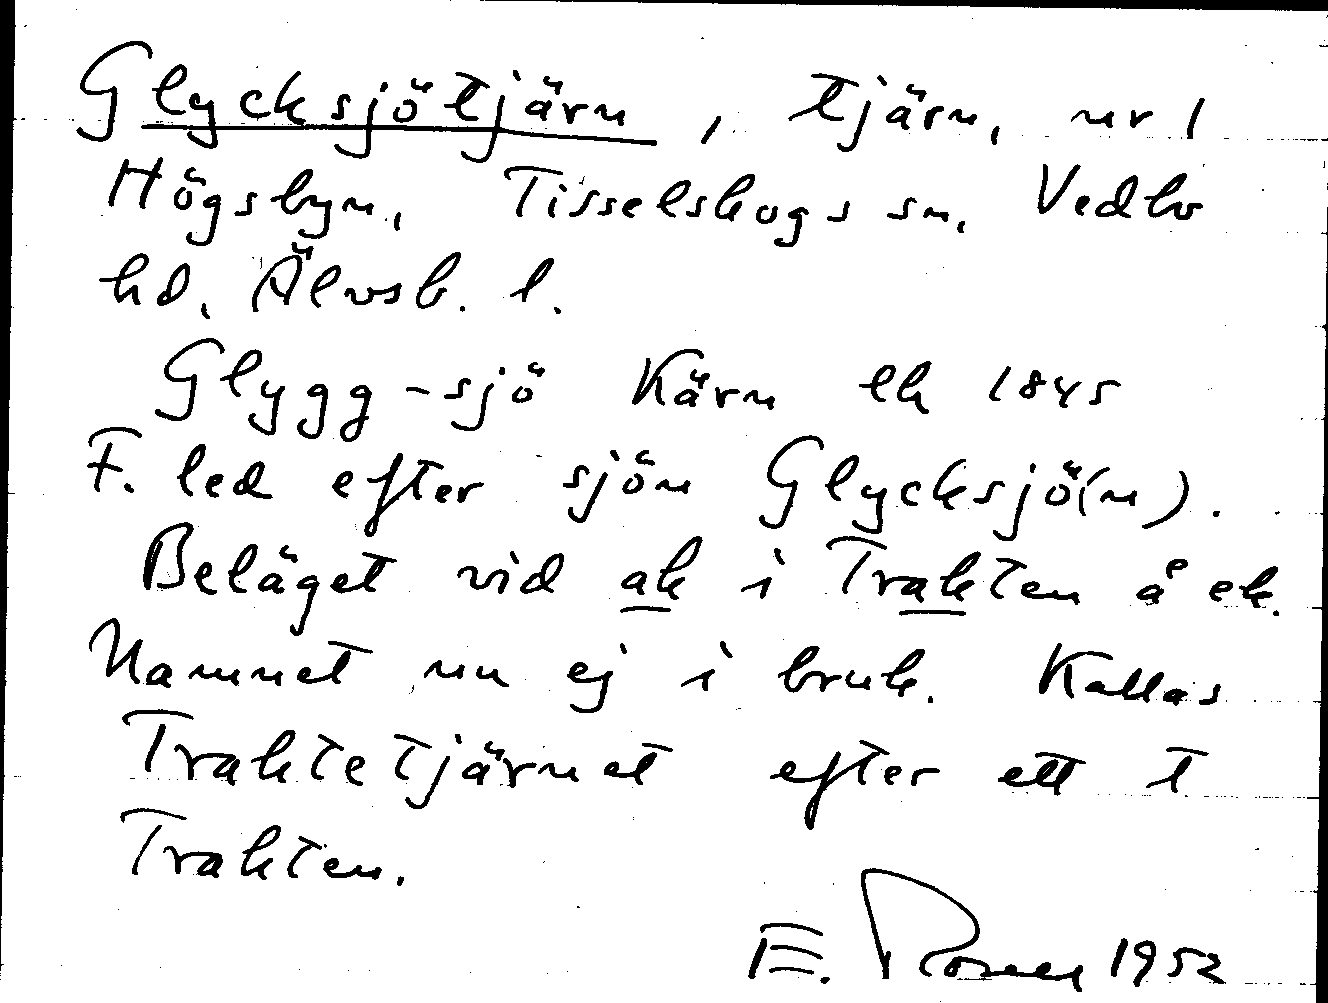 Glycksjötjärn, tjärn, nr 1
Högsbyn, Tisselskogs sn, Vedbo
hd, Älvsb. l.
Glygg-sjö Kärn ek 1845
F. led efter sjön Glycksjö(n).
Beläget vid ak i Trakten å ek.
Namnet nu ej i bruk. Kallas
Traktetjärnet efter ett t
Trakten.
E. Rosell 1952